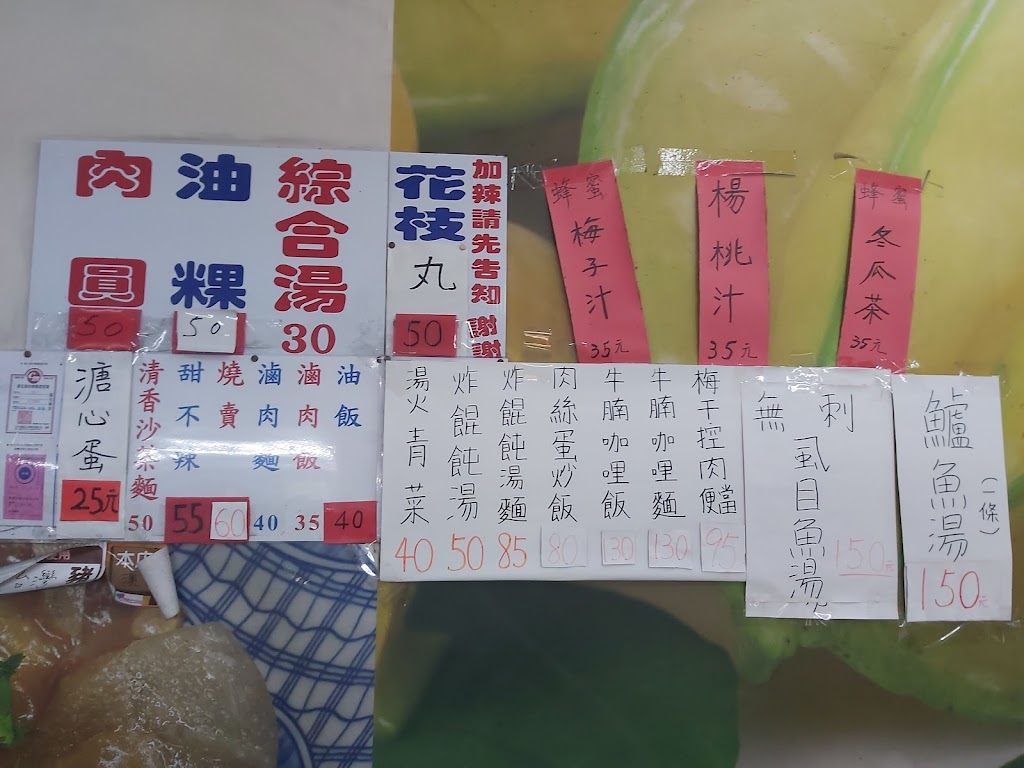 肉圓
50
油粿
50
綜合湯
30
花枝丸
50
加辣請先告知 謝謝
蜂蜜梅子汁
35元
楊桃汁
35元
蜂蜜冬瓜茶
35元
溏心蛋
25元
清香沙茶麵
50
甜不辣
55
燒賣
60
滷肉麵
40
滷肉飯
35
油飯
40
湯火青菜
40
炸餛飩湯
50
炸餛飩湯麵
85
肉絲蛋炒飯
80
牛腩咖哩飯
130
牛腩咖哩麵
130
梅干控肉便當
95
無刺
虱目魚湯
150元
鱸魚湯
(一條)
150元
本店
台灣豬